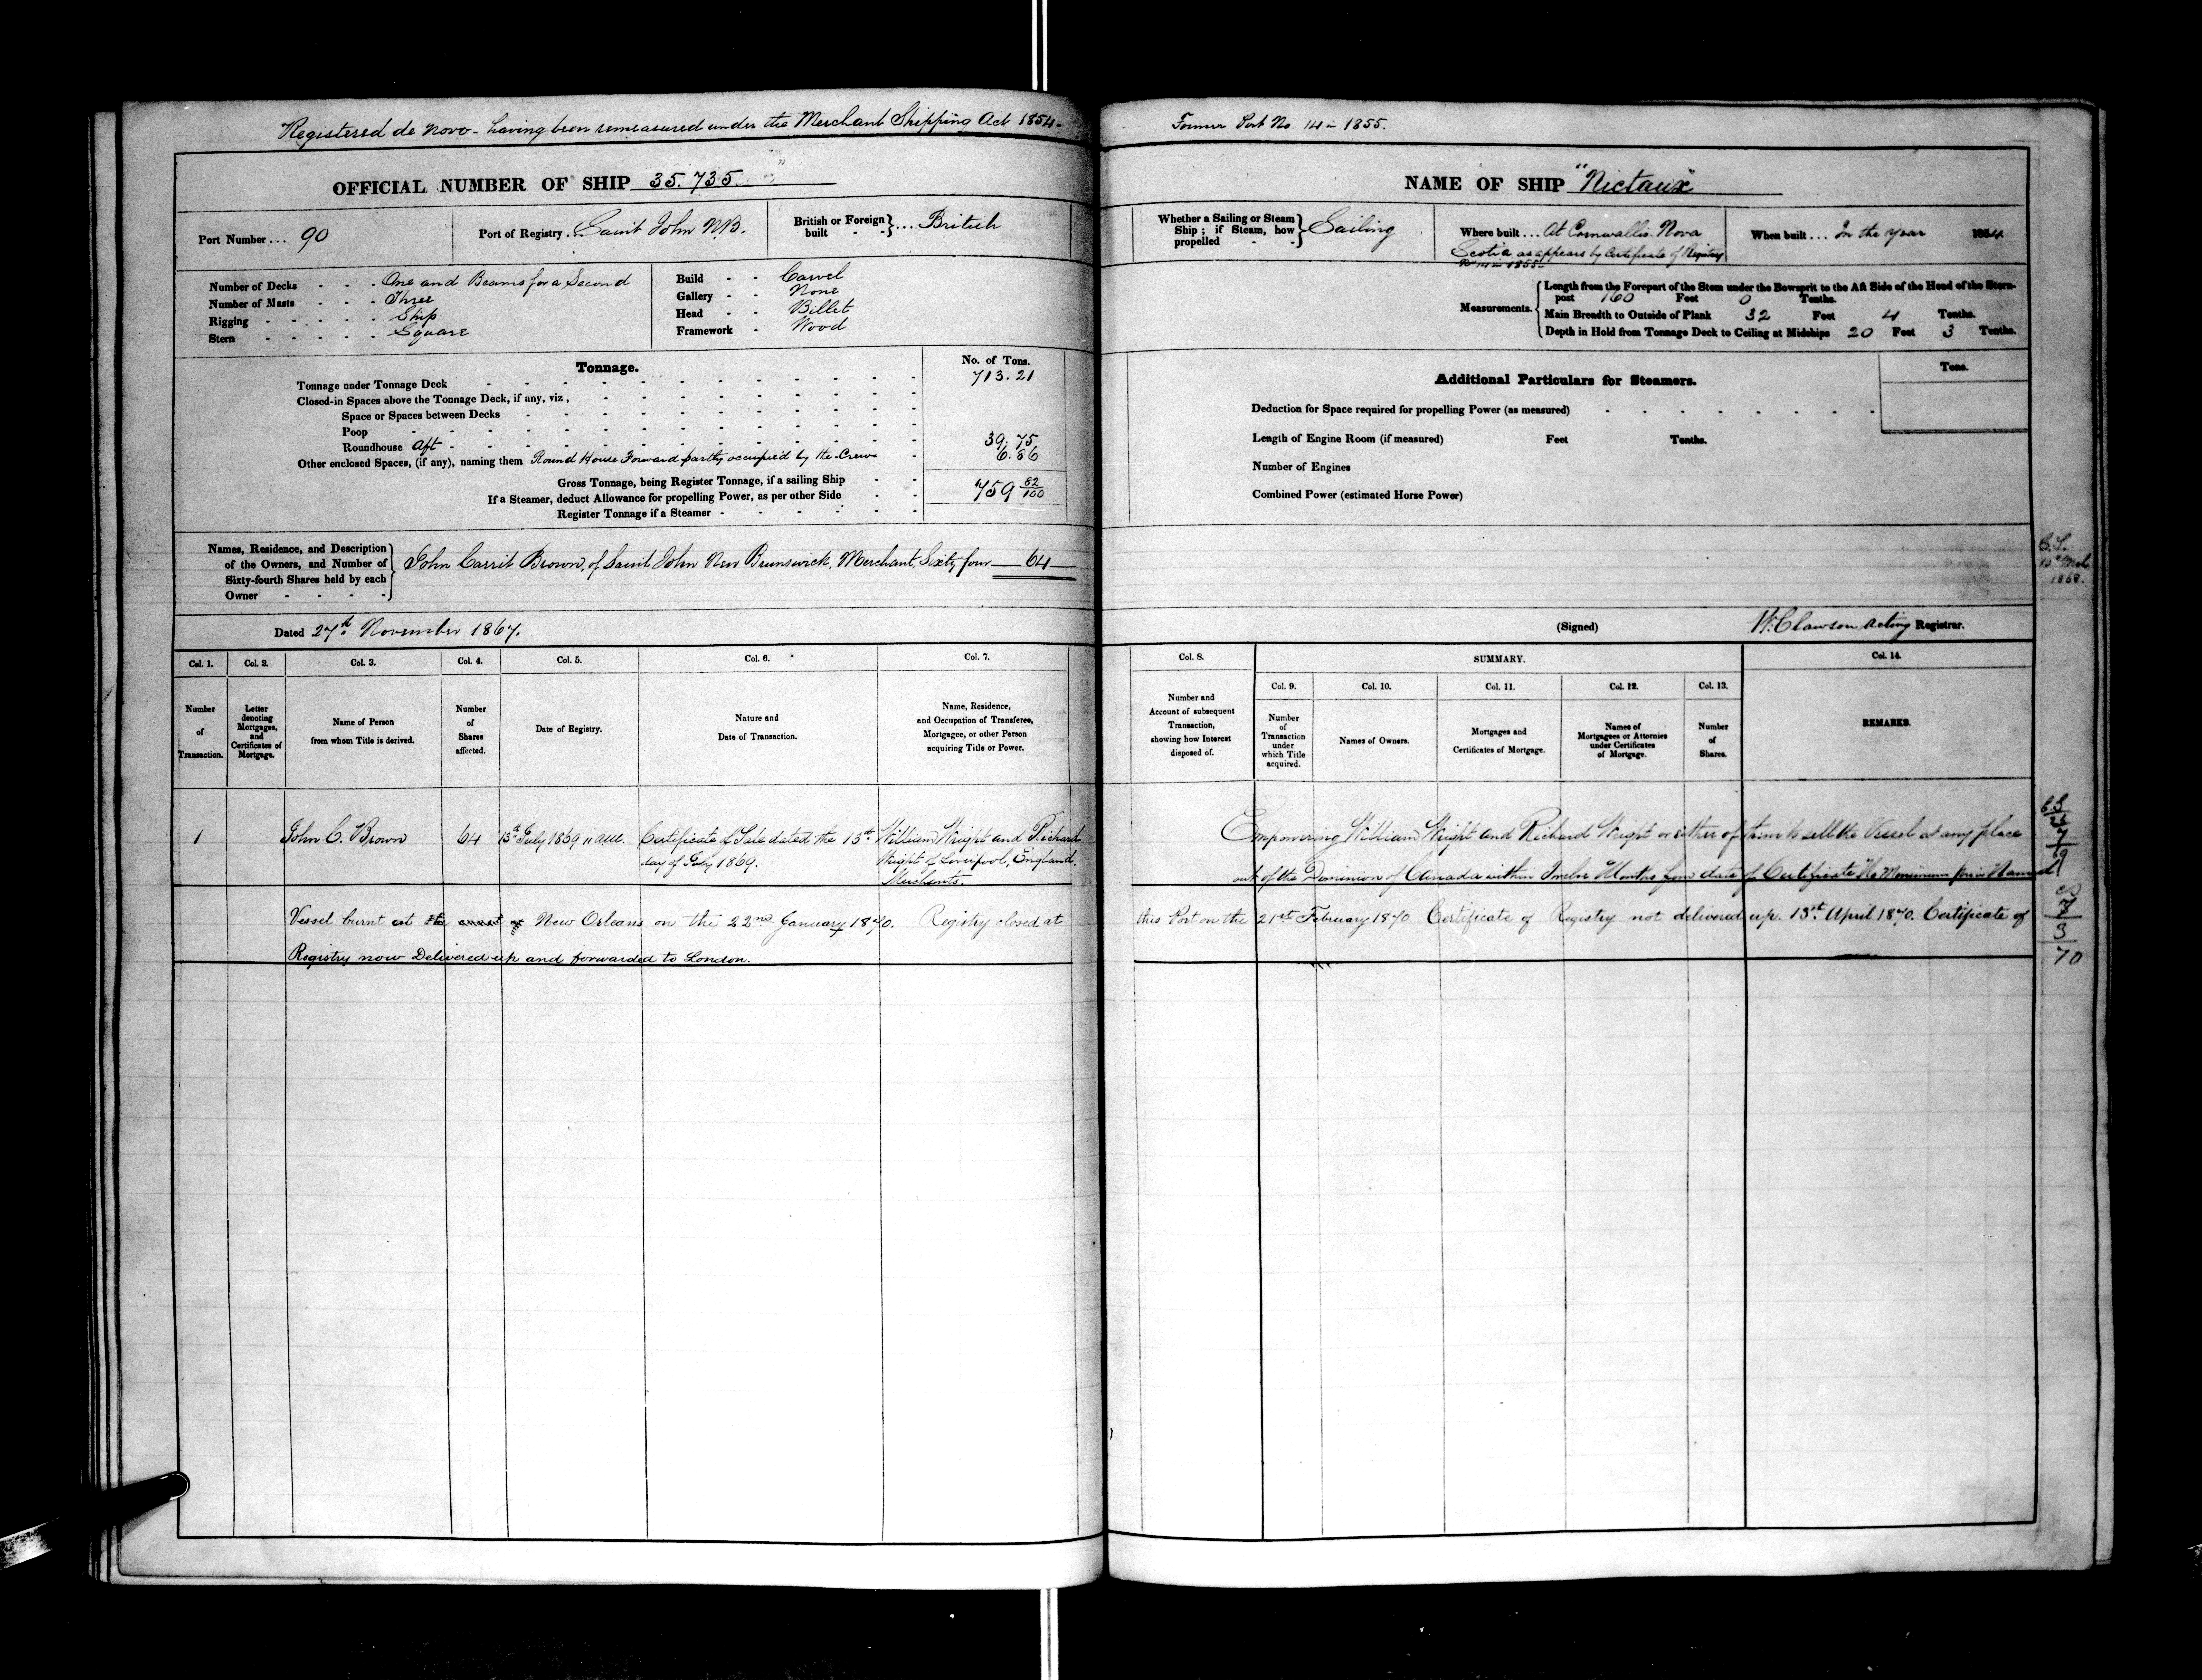 Registered de Novo - having been remeasured under the Merchant Shipping Act 1854 -
OFFICIAL NUMBER OF SHIP 35.735
Port Number ... 90
Port of Registry . Saint John N.B.
British or Foreign built - - } ... British
Number of Decks - - - One and Beams for a Second
Number of Masts - - - Three
Rigging - - - - - Ship
Stern - - - - - Square
Build - - Carvel
Gallery - - None
Head - - Billet
Framework - Wood
Tonnage.
No. of Tons.
Tonnage under Tonnage Deck 713.21
Closed-in Spaces above the Tonnage Deck, if any, viz,
Space or Spaces between Decks
Poop
Roundhouse Aft - 39.75
Other enclosed Spaces, (if any), naming them Round House Forward partly occupied by the Crew 6.86
Gross Tonnage, being Register Tonnage, if a sailing Ship
759 82/100
If a Steamer, deduct Allowance for propelling Power, as per other Side
Register Tonnage if a Steamer
Names, Residence, and Description
of the Owners, and Number of
Sixty-fourth Shares held by each
Owner - - - -
John Carrit Brown, of Saint John New Brunswick, Merchant, Sixty four 64
Dated 27th November 1867.
Col. 1. Col. 2. Col. 3. Col. 4. Col. 5. Col. 6. Col. 7.
Number of Transaction.
Letter denoting Mortgages, and Certificates of Mortgage.
Name of Person from whom Title is derived.
Number of Shares affected.
Date of Registry.
Nature and Date of Transaction.
Name, Residence, and Occupation of Transferee, Mortgagee, or other Person acquiring Title or Power.
1 John C. Brown 64 13th July 1869 11 a.m. Certificate of Sale dated the 13th William Wright and Richard
day of July 1869. Wright of Liverpool, England.
Merchants.
Vessel burnt at the New Orleans on the 22nd January 1870. Registry closed at
Registry now Delivered up and forwarded to London.
Former Port No. 14 in 1855.
NAME OF SHIP "Nictaux"
Whether a Sailing or Steam Ship; if Steam, how propelled - - } Sailing
Where built ... At Cornwallis Nova
Scotia as appears by Certificate of Registry
No 14 in 1855 -
When built ... In the year 1854
Measurements.
Length from the Forepart of the Stem under the Bowsprit to the Aft Side of the Head of the Stern-
post 160 Feet 0 Tenths.
Main Breadth to Outside of Plank 32 Feet 4 Tenths.
Depth in Hold from Tonnage Deck to Ceiling at Midships 20 Feet 3 Tenths.
Additional Particulars for Steamers.
Tons.
Deduction for Space required for propelling Power (as measured)
Length of Engine Room (if measured) Feet Tenths.
Number of Engines
Combined Power (estimated Horse Power)
1868.
(Signed) W. Clawson Acting Registrar.
Col. 8. SUMMARY. Col. 14.
Col. 9. Col. 10. Col. 11. Col. 12. Col. 13.
Number and Account of subsequent Transaction, showing how Interest disposed of.
Number of Transaction under which Title acquired.
Names of Owners.
Mortgages and Certificates of Mortgage.
Names of Mortgagees or Attornies under Certificates of Mortgage.
Number of Shares.
REMARKS.
Empowering William Wright and Richard Wright or either of them to sell the Vessel at any place
out of the Dominion of Canada within Twelve Months from date of Certificate No Minimum Price Named
this Port on the 21st February 1870. Certificate of Registry not delivered up. 13th April 1870. Certificate of
7
3
70